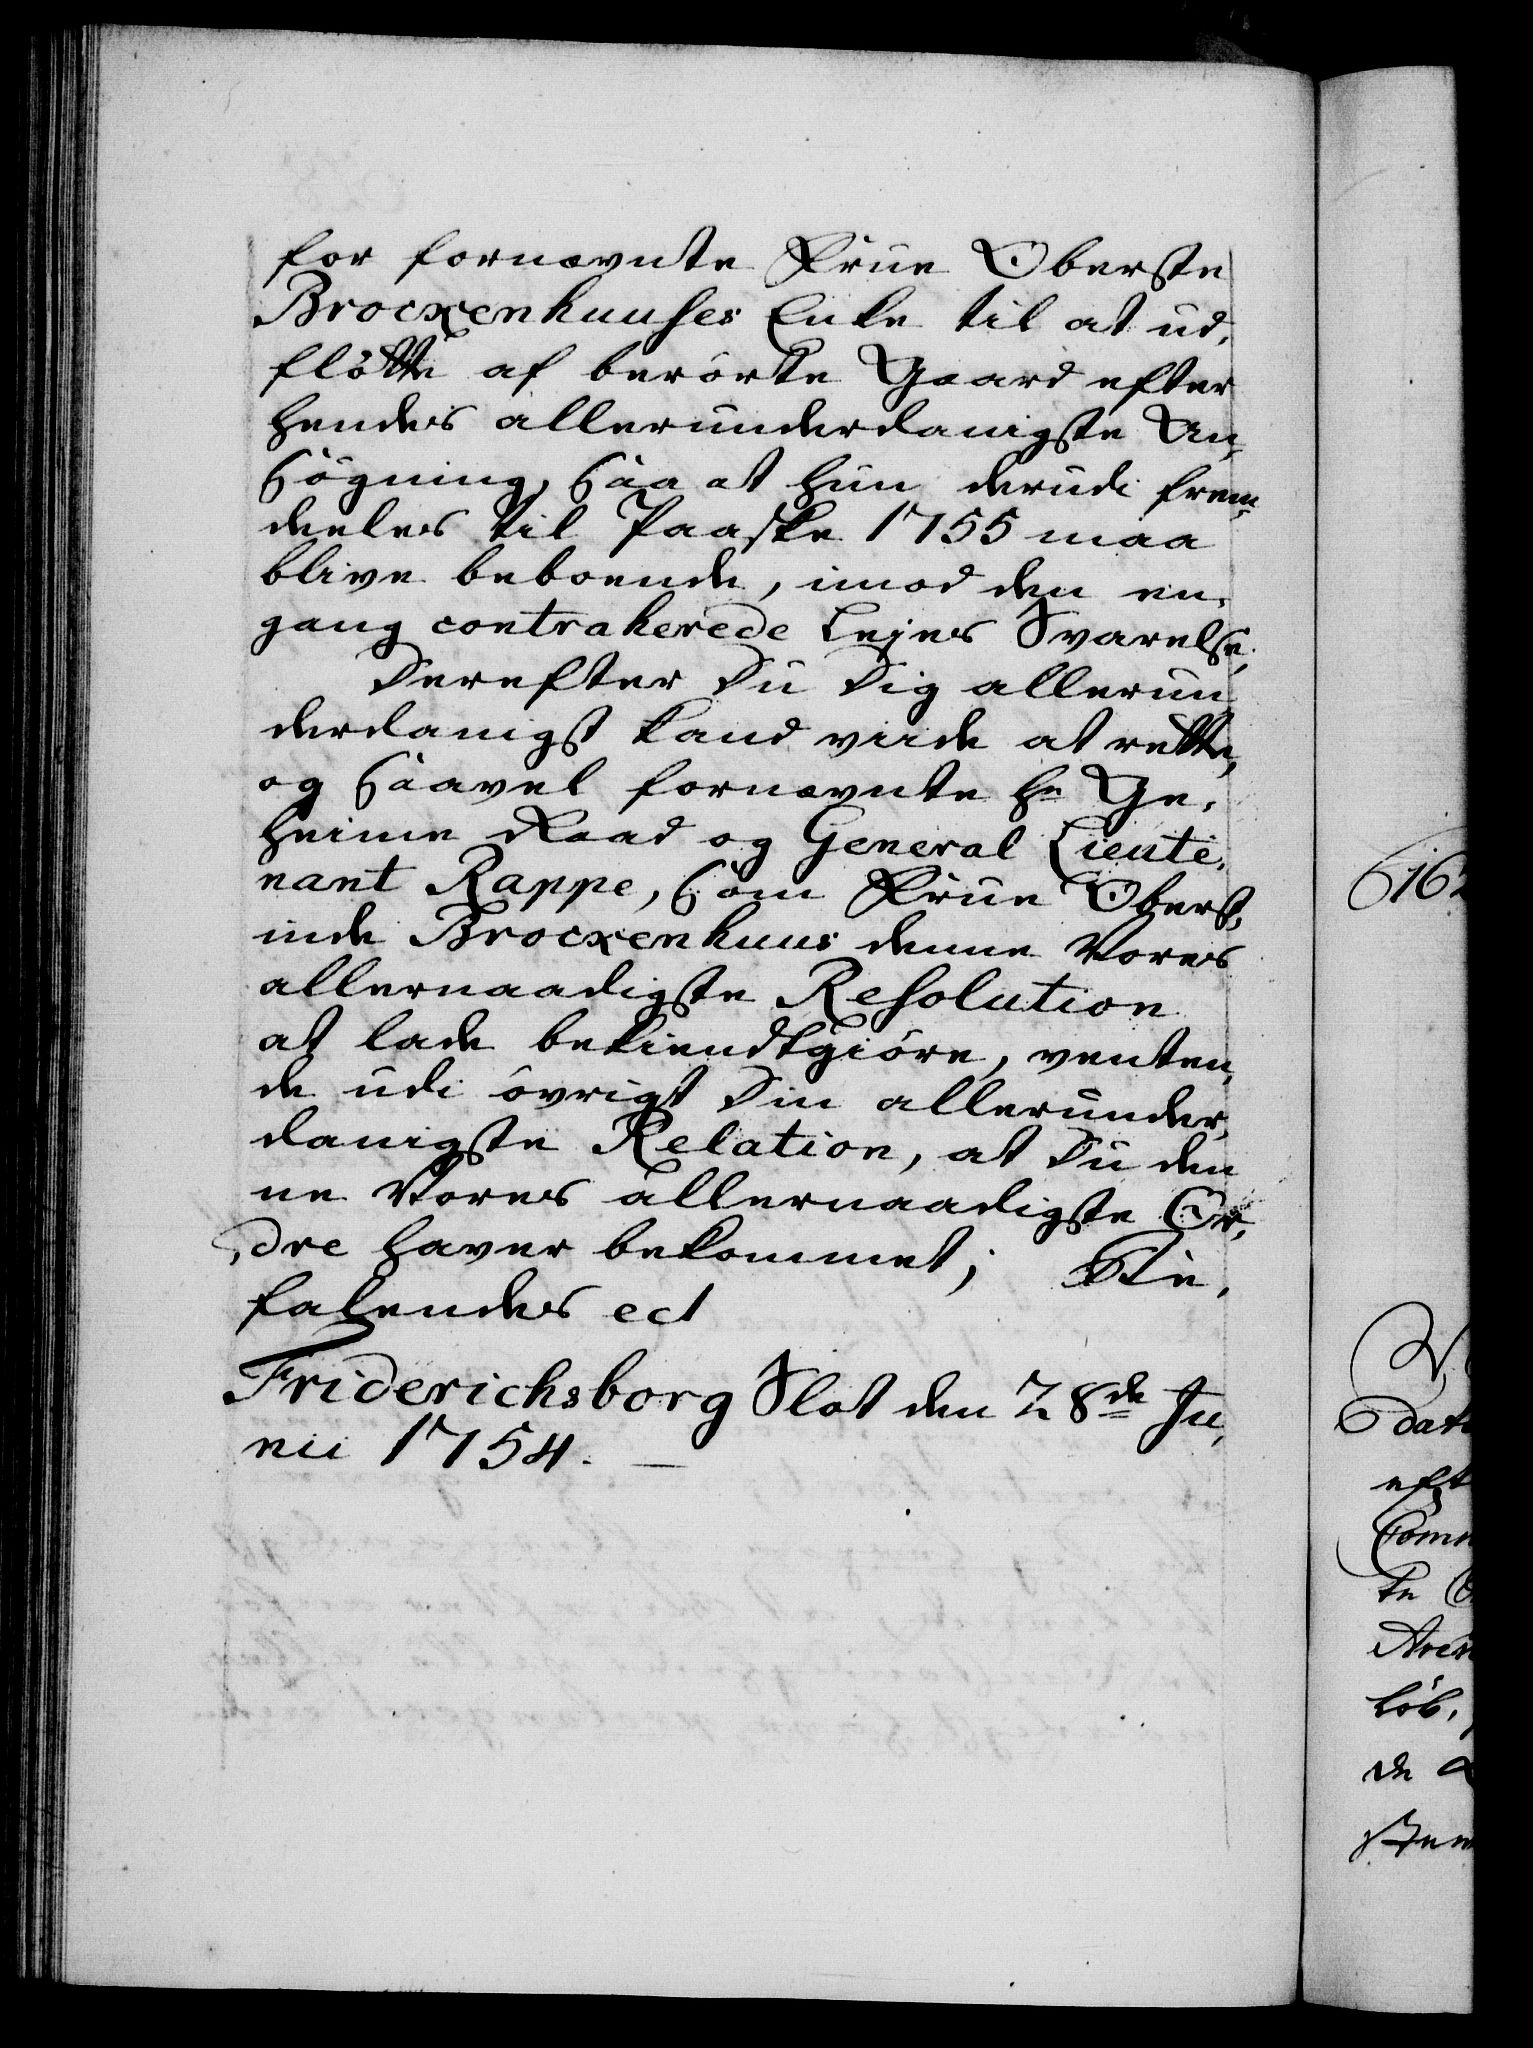 for fornævnte Frue Oberste
Brocxenhuuses Enke til at ud,
flötte af berörte Gaard efter
hendes allerunderdanigste An,
sögning, saa at hun derudi frem,
deeles til Paaske 1755 maa
blive beboende, imod den en,
gang contraherede Lejes Svarelse,
Derefter Du Dig allerun
derdanigst kand viide at rette,
og saavel fornævnte Hr Ge,
heime Raad og General Lieute,
nant Rappe, som Frue Oberst,
inde Brocxenhuus denne Vores
allernaadigste Resolution
at lade bekiendtgiöre, venten,
de udi övrigt Din allerunder,
danigste Relation, at Du den
ne Vores allernaadigste Or,
dre haver bekommet;
falendes ect
Friderichsborg Slot den 28de Ju,
nii 1754.